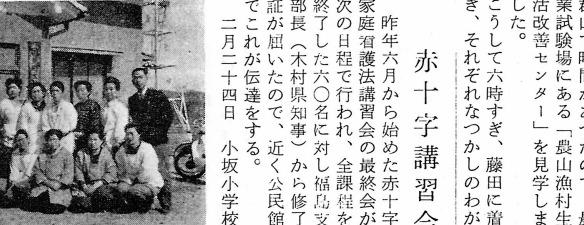 業試験場にある「農山漁村生
活改善センター」を見学しま
した。
こうして六時すぎ、藤田に着
き、それぞれなつかしのわが
赤十字講習会
昨年六月から始めた赤十字
家庭看護法講習会の最終会が
次の日程で行われ、全課程を
終了した六〇名に対し福島支
部長(木村県知事)から修了
証が届いたので、近く公民館
でこれが伝達をする。
二月二十四日 小坂小学校